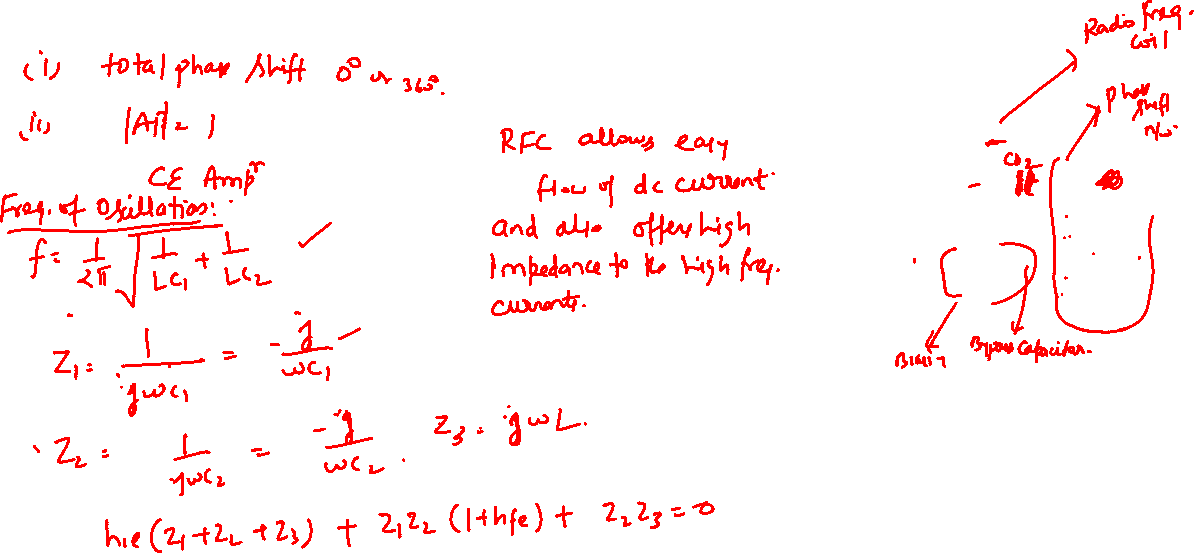 (i) total phase shift 0° or 360°.
(ii) |Aβ| = 1
CE Ampr
Freq. of Oscillation:
f = 1/2π √(1/LC1 + 1/LC2)
Z1 = 1/jωC1 = -j/ωC1
Z2 = 1/jωC2 = -j/ωC2. Z3 = jωL.
hie(Z1+Z2+Z3) + Z1Z2(1+hfe) + Z2Z3 = 0
RFC allows easy
flow of dc current.
and also offers high
Impedance to the high freq.
currents.
Radio freq.
coil
Phase
shift
n/w.
CO2
Biasing
Bypass capacitor.